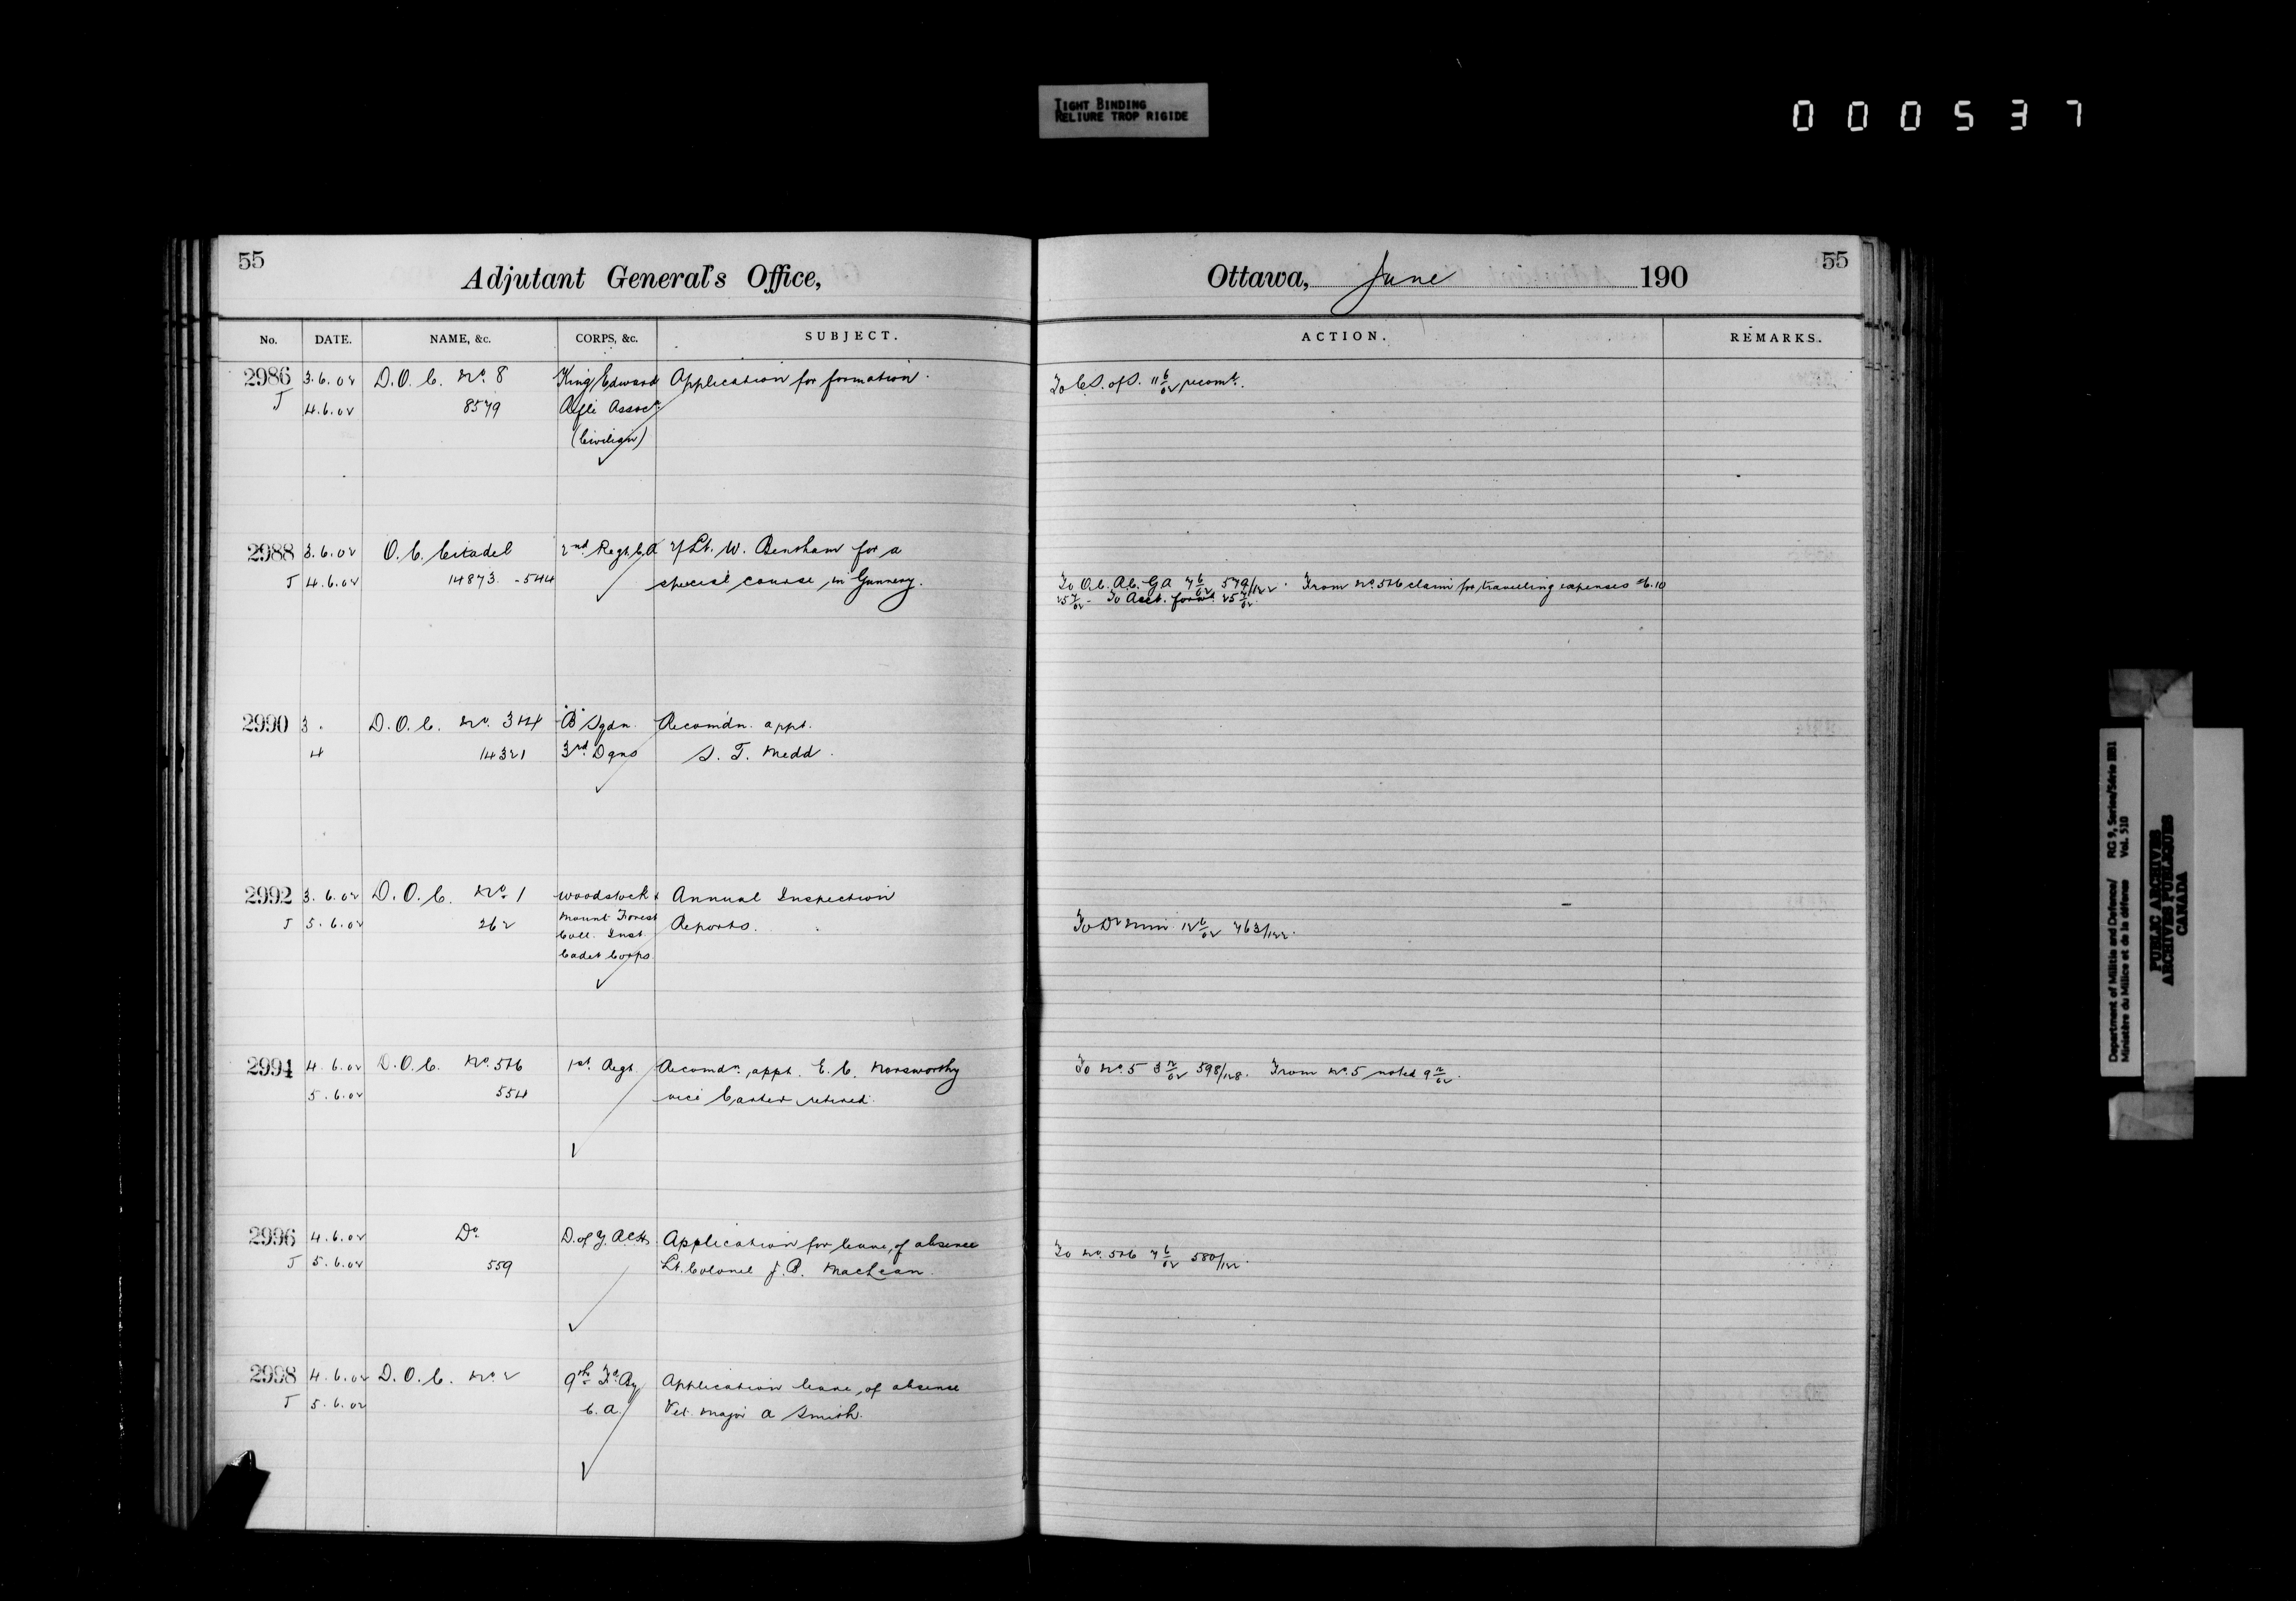 TIGHT BINDING
RELIURE TROP RIGIDE
000537
55
Adjutant General's Office,
No. DATE. NAME, &c. CORPS, &c. SUBJECT.
2986 3.6.02 D.O.C. No. 8 King Edward Application for formation.
J 4.6.02 8579 Rifle Assocn
(Civilian)
2988 3.6.02 O.C. Citadel 2nd Regt C.A.
J 4.6.02 14873 - 544 special course in Gunnery.
2990 3. D.O.C. No. 3&4 "B" Sqdn. Recomdn. appt.
4 14321 3rd Dgns S. T. Medd.
2992 3.6.02 D.O.C. No. 1 Woodstock & Annual Inspection
J 5.6.02 262 Mount Forest Reports.
Coll. Inst.
Cadet Corps
2994 4.6.02 D.O.C. No. 5&6 1st Regt. Recomdn. appt. E. C. Norsworthy
5.6.02 554 vice Carter retired.
2996 4.6.02 Do. Application for leave of absence
J 5.6.02 559 Lt. Colonel J. B. MacLean.
2998 4.6.02 D.O.C. No. 2 9th Fd. By Application leave of absence
J 5.6.02 C.A. Vet. Major A Smith.
55
Ottawa, June 190
ACTION. REMARKS.
To C.S. of S. 11 6/02 recomd.
To 7 6/02 579/122. From No. 5&6 claim for travelling expenses 6.10
25 7/02 - To Acct. 25 7/02.
To Dr Min 12 6/02 763/122.
To No. 5 3 7/02 598/128. From No. 5 noted 9 7/02.
To No. 5&6 7 6/02 580/122.
Department of Militia and Defence/ RG 9, Series/Série IIB1
Ministère du Milice et de la défense Vol. 510
PUBLIC ARCHIVES
ARCHIVES PUBLIQUES
CANADA